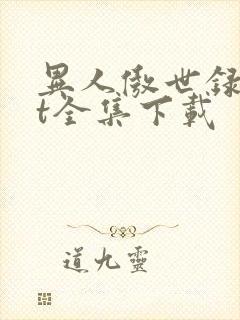 異人傲世録
t全集下載
道九靈